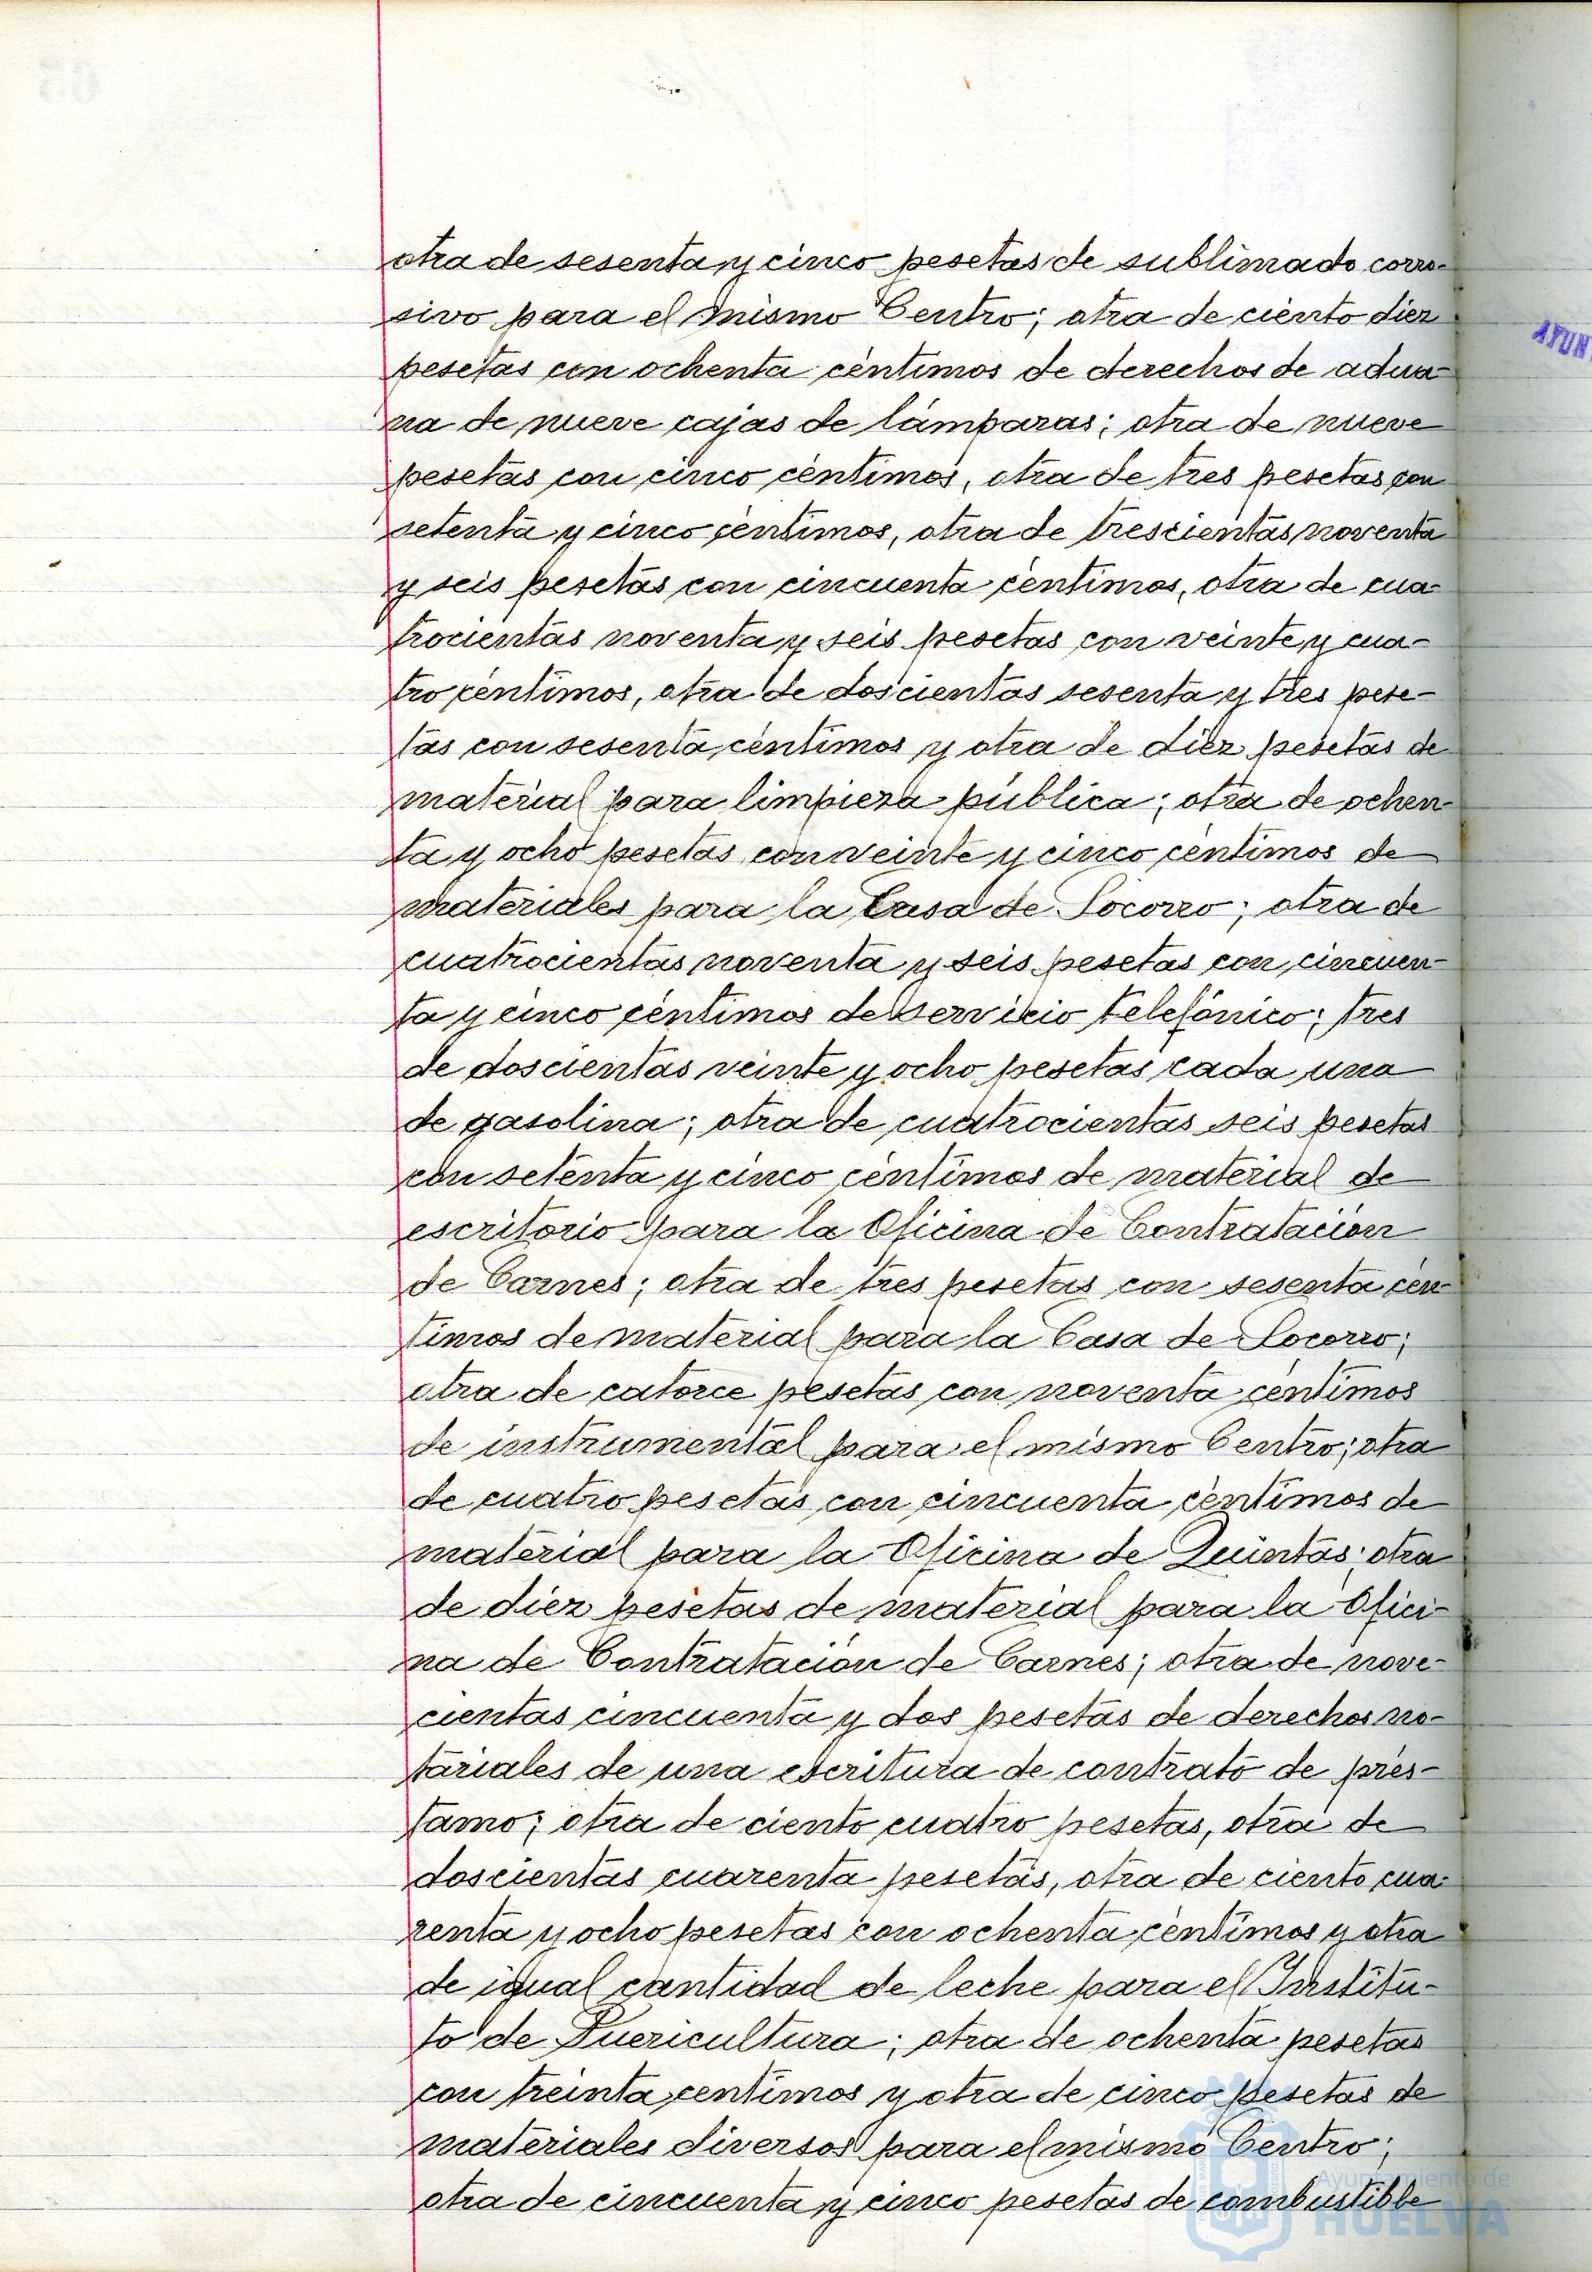 otra de sesenta y cinco pesetas de sublimado corro-
sivo para el mismo Centro; otra de ciento diez
pesetas con ochenta céntimos de derechos de adua-
na de nueve cajas de lámparas; otra de nueve
pesetas con cinco céntimos, otra de tres pesetas con
setenta y cinco céntimos, otra de trescientas noventa
y seis pesetas con cincuenta céntimos, otra de cua-
trocientas noventa y seis pesetas con veinte y cua-
tro céntimos, otra de doscientas sesenta y tres pese-
tas con sesenta céntimos y otra de diez pesetas de
material para limpieza pública; otra de ochen-
ta y ocho pesetas con veinte y cinco céntimos de
materiales para la Casa de Socorro; otra de
cuatrocientas noventa y seis pesetas con cincuen-
ta y cinco céntimos de servicio telefónico; tres
de doscientas veinte y ocho pesetas cada una
de gasolina; otra de cuatrocientas seis pesetas
con setenta y cinco céntimos de material de
escritorio para la Oficina de Contratación
de Carnes; otra de tres pesetas con sesenta cén-
timos de material para la Casa de Socorro;
otra de catorce pesetas con noventa céntimos
de instrumental para el mismo Centro; otra
de cuatro pesetas con cincuenta céntimos de
material para la Oficina de Quintas; otra
de diez pesetas de material para la Ofici-
na de Contratación de Carnes; otra de nove-
cientas cincuenta y dos pesetas de derechos no-
tariales de una escritura de contrato de prés-
tamo; otra de ciento cuatro pesetas, otra de
doscientas cuarenta pesetas, otra de ciento cua-
renta y ocho pesetas con ochenta céntimos y otra
de igual cantidad de leche para el Institu-
to de Puericultura; otra de ochenta pesetas
con treinta centimos y otra de cinco pesetas de
materiales diversos para el mismo Centro;
otra de cincuenta y cinco pesetas de combustible
AYUN
Ayuntamiento de
HUELVA